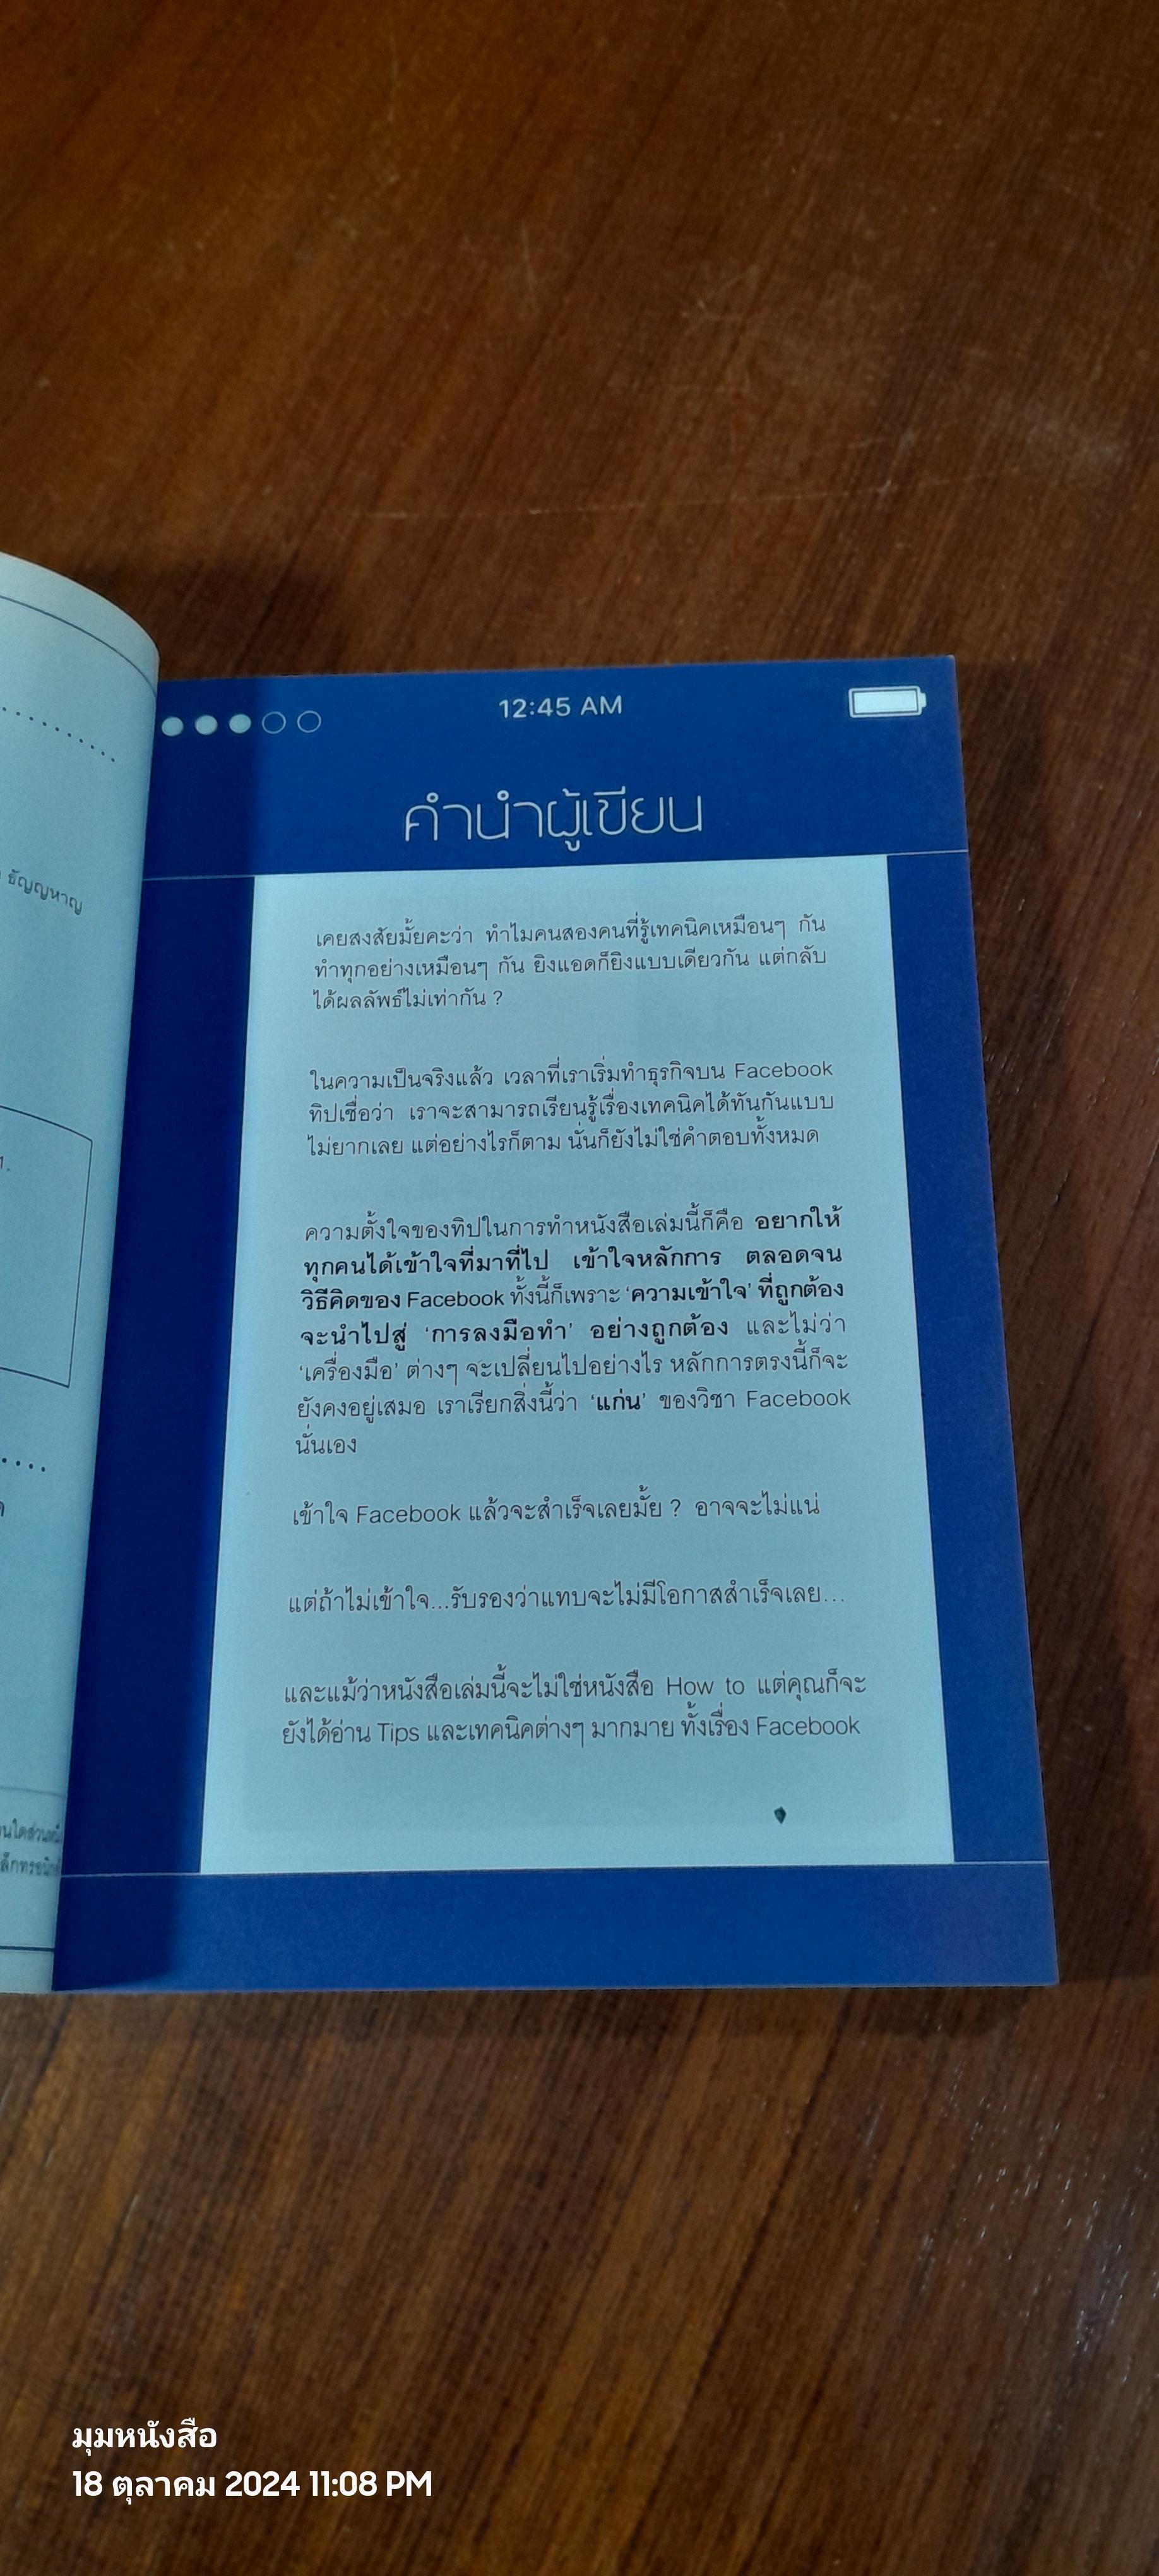 ธัญญหาญ
12:45 AM
คำนำผู้เขียน
เคยสงสัยมั้ยคะว่า ทำไมคนสองคนที่รู้เทคนิคเหมือนๆ กัน
ทำทุกอย่างเหมือนๆ กัน ยิงแอดก็ยิงแบบเดียวกัน แต่กลับ
ได้ผลลัพธ์ไม่เท่ากัน ?
ในความเป็นจริงแล้ว เวลาที่เราเริ่มทำธุรกิจบน Facebook
ทิปเชื่อว่า เราจะสามารถเรียนรู้เรื่องเทคนิคได้ทันกันแบบ
ไม่ยากเลย แต่อย่างไรก็ตาม นั่นก็ยังไม่ใช่คำตอบทั้งหมด
ความตั้งใจของทิปในการทำหนังสือเล่มนี้ก็คือ อยากให้
ทุกคนได้เข้าใจที่มาที่ไป เข้าใจหลักการ ตลอดจน
วิธีคิดของ Facebook ทั้งนี้ก็เพราะ ‘ความเข้าใจ’ ที่ถูกต้อง
จะนำไปสู่ ‘การลงมือทำ’ อย่างถูกต้อง และไม่ว่า
‘เครื่องมือ’ ต่างๆ จะเปลี่ยนไปอย่างไร หลักการตรงนี้ก็จะ
ยังคงอยู่เสมอ เราเรียกสิ่งนี้ว่า ‘แก่น’ ของวิชา Facebook
นั่นเอง
เข้าใจ Facebook แล้วจะสำเร็จเลยมั้ย ? อาจจะไม่แน่
แต่ถ้าไม่เข้าใจ...รับรองว่าแทบจะไม่มีโอกาสสำเร็จเลย...
และแม้ว่าหนังสือเล่มนี้จะไม่ใช่หนังสือ How to แต่คุณก็จะ
ยังได้อ่าน Tips และเทคนิคต่างๆ มากมาย ทั้งเรื่อง Facebook
มุมหนังสือ
18 ตุลาคม 2024 11:08 PM